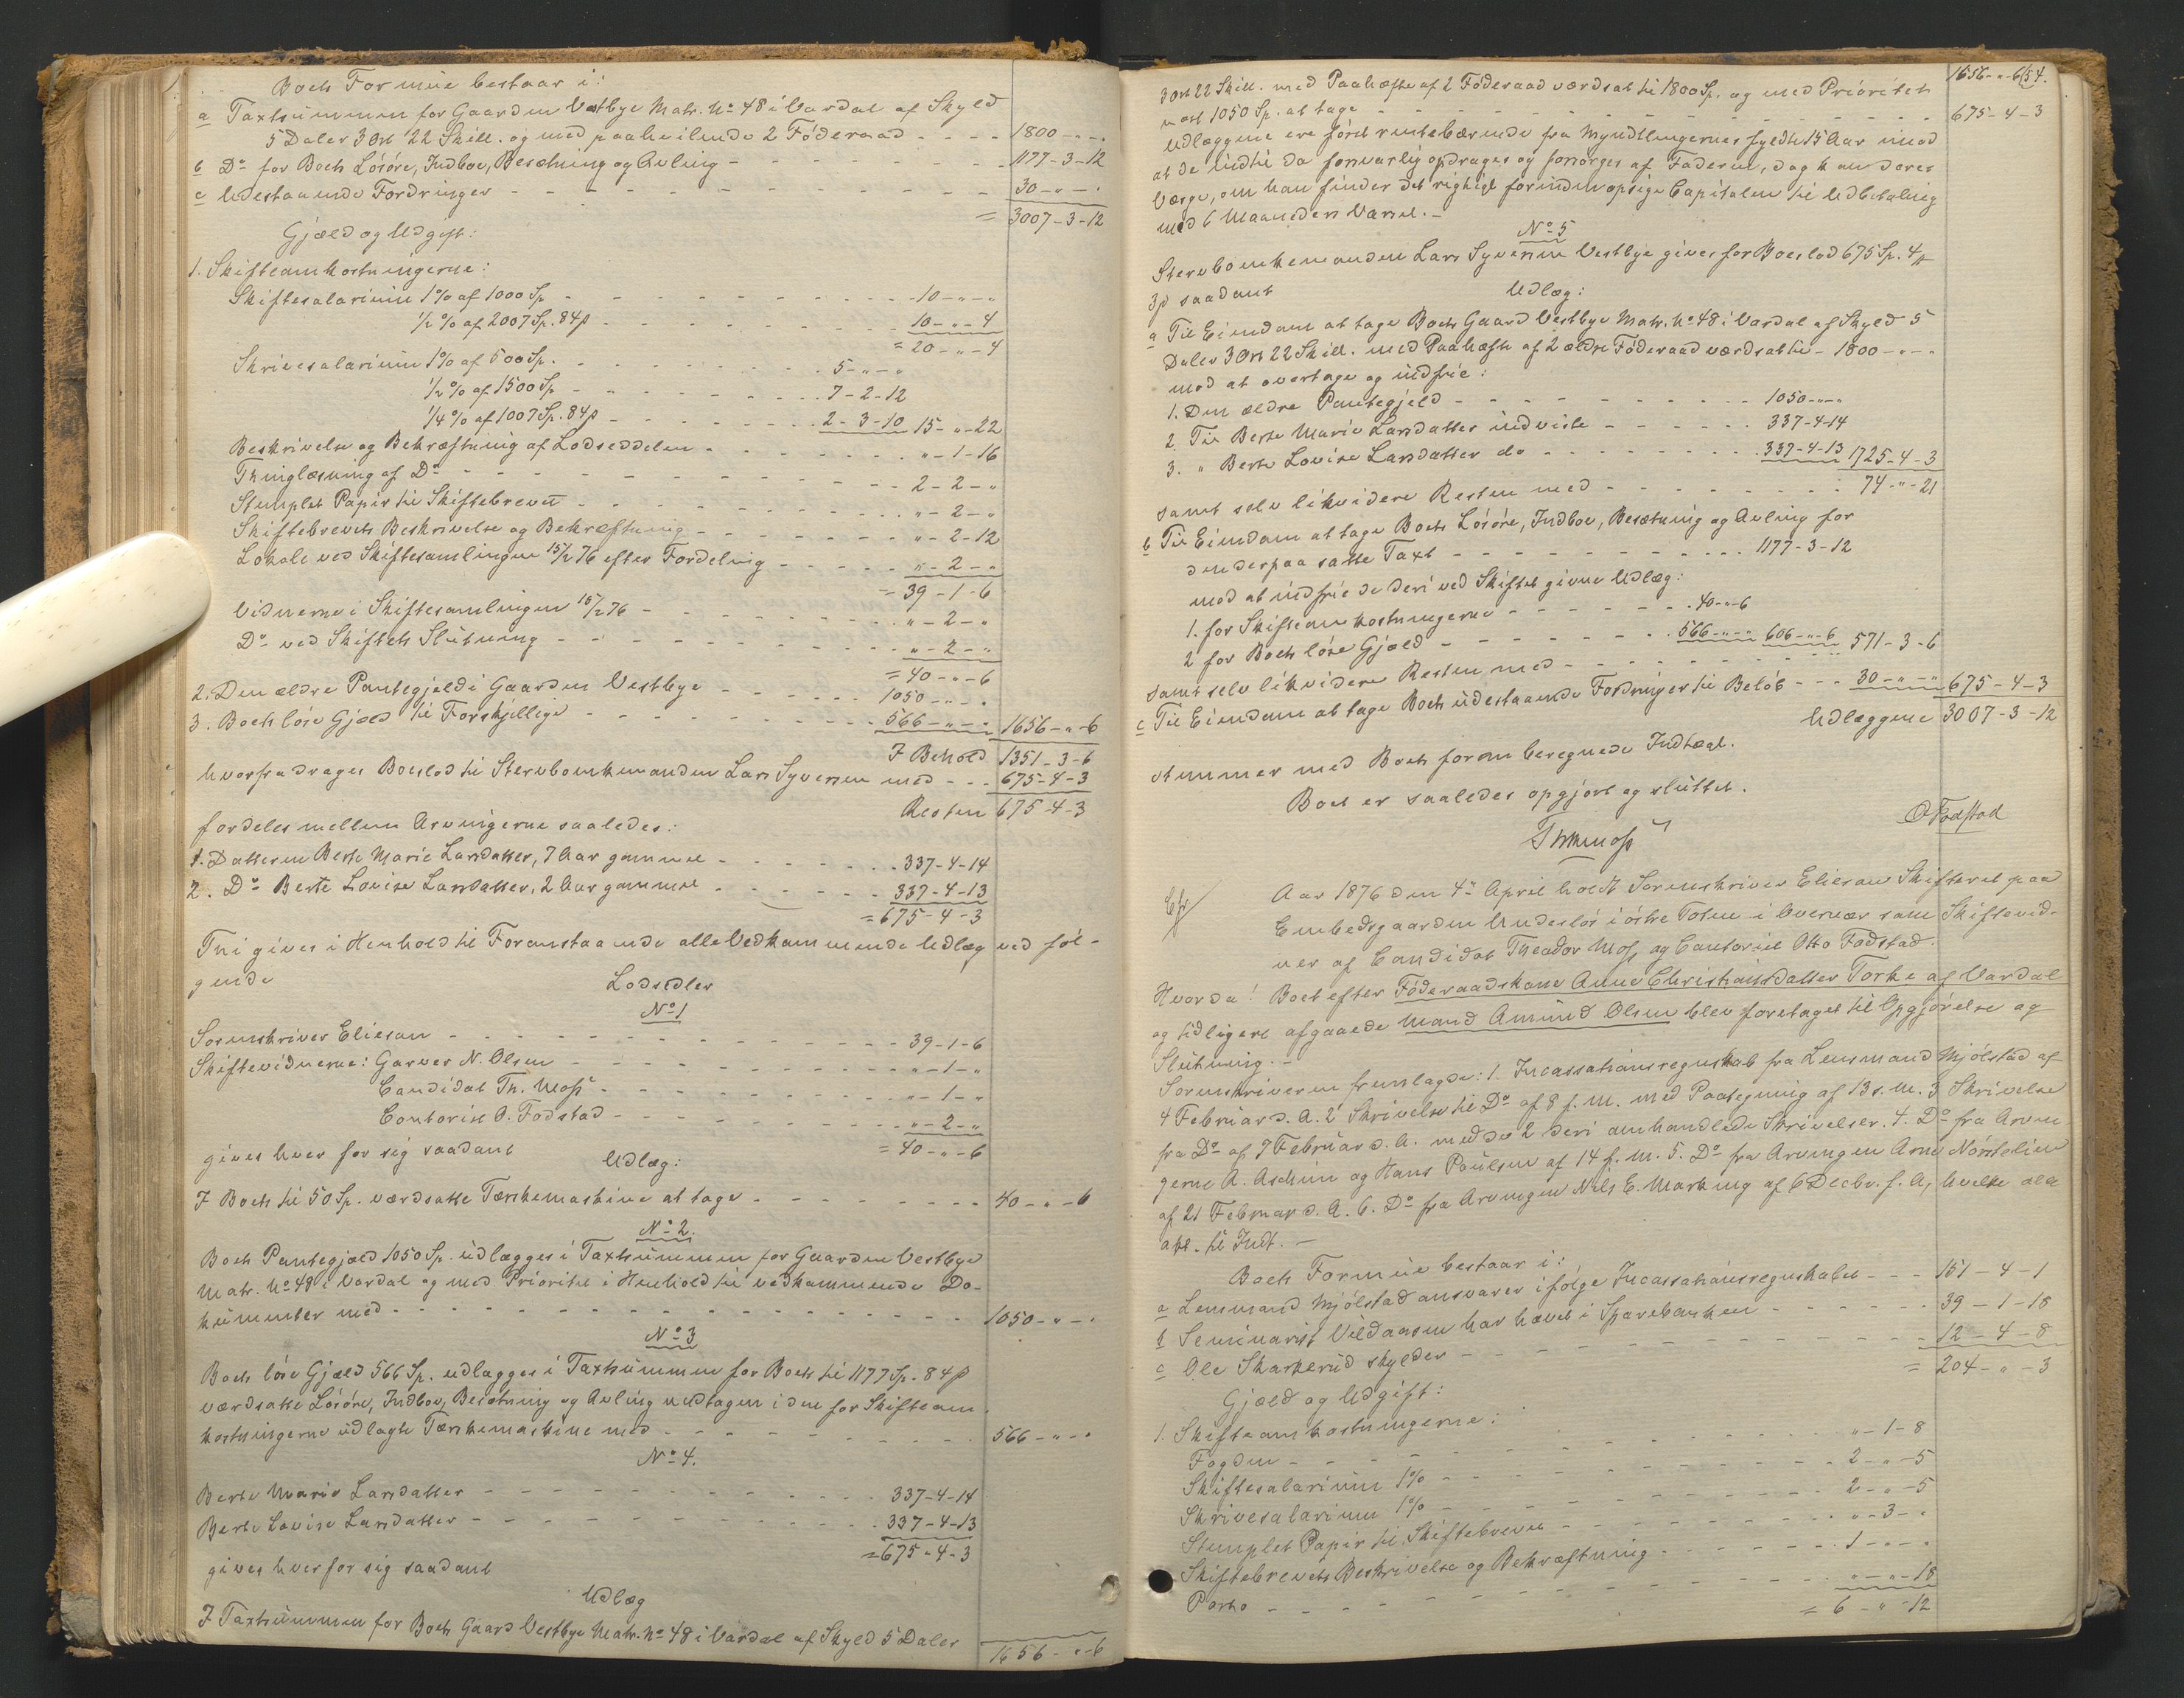 Boets Formue bestaar i:
a Taxtsummen for Gaarden Vestbye Matr. No 48 i Vardal af Skyld
5 Daler 3 Ort 22 Skill. og med paaheilende 2 Föderaad - - - - 1800 - " - "
b Do for Boets Lösöre, Indboe, Besætning og Avling - - - - 1177 - 3 - 12
c Udestaaende Fordringer - - - - 30 - " - "
= 3007 - 3 - 12
Gjæld og Udgift:
1. Skifteomkostningerne:
Skiftesalarium 1% af 1000 Sp. - - - - 10 - " - "
1/2 % af 2007 Sp. 84 ß - - - - 10 - " - 4
= 20 - " - 4
Skrivesalarium 1% af 500 Sp. - - - - 5 - " - "
1/2 % af 1500 Sp - - - - 7 - 2 - 12
1/4 % af 1007 Sp. 84 ß - - - - 2 - 3 - 10 15 - " - 22
Beskrivelse og Bekræftning af Lodseddelen - - - - " - 1 - 16
Thinglæsning af Do - - - - 2 - 2 - "
Stemplet Papir til Skiftebrevet - - - - " - 2 - "
Skiftebrevets Beskrivelse og Bekræftning - - - - " - 2 - 12
Lokale ved Skiftesamlingen 15/2 76 efter Fordeling - - - - " - 2 - "
= 39 - 1 - 6
Vidnerne i Skiftesamlingen 15/2 76 - - - - " - 2 - "
Do ved Skiftets Slutning - - - - " - 2 - "
= 40 - " - 6
2. Den ældre Pantegjeld i Gaarden Vestbye - - - - 1050 - " - "
3. Boets löse Gjæld til Forskjellige - - - - 566 - " - " 1656 - " - 6
I Behold 1351 - 3 - 6
hvorfra drages Boeslod til Stervbomkemanden Lars Syversen med - - - 675 - 4 - 3
Resten 675 - 4 - 3
fordeles mellem Arvingerne saaledes:
1. Datteren Berte Marie Larsdatter, 7 Aar gammel - - - - 337 - 4 - 14
2. Do Berte Lovise Larsdatter, 2 Aar gammel - - - - 337 - 4 - 13
= 675 - 4 - 3
Thi gives i Henhold til Foranstaaende alle Vedkommende Udlæg ved föl-
gende
Lodsedler
No 1
Sorenskriver Eliesen - - - - 39 - 1 - 6
Skiftevidnerne: Garver N. Olsen - - - - " - 1 - "
Candidat Th. Moss - - - - " - 1 - "
Contorist O. Fodstad - - - - " - 2 - "
gives hver for sig saadant = 40 - " - 6
Udlæg:
I Boets til 50 Sp. værdsatte Tærskemaskine at tage - - - - 40 - " - 6
No 2.
Boets Pantegjæld 1050 Sp. udlægges i Taxtsummen for Gaarden Vestbye
Matr. No 48 i Vardal og med Prioritet i Henhold til vedkommende Do-
kumenter med - - - - 1050 - " - "
No 3
Boets löse Gjæld 566 Sp. udlægges i Taxtsummen for Boets til 1177 Sp. 84 ß
værdsatte Lösöre, Indboe, Besætning og Avling undtagen i den for Skifteom-
kostningerne udlagte Tærskemaskine med - - - - 566 - " - "
No 4.
Berte Marie Larsdatter - - - - 337 - 4 - 14
Berte Lovise Larsdatter - - - - 337 - 4 - 13
= 675 - 4 - 3
gives hver for sig saadant
Udlæg
I Taxtsummen for Boets Gaard Vestbye Matr. No 48 i Vardal af Skyld 5 Daler
1656 - " - 6
1656 - " - 6 154.
3 Ort 22 Skill. med Paahæfte af 2 Föderaad værdsat til 1800 Sp. og med Prioritet
næst 1050 Sp. at tage - - - - 675 - 4 - 3
Udlæggene ere först rentebærende fra Myndtlingernes fyldte 15 Aar imod
at de indtil da forsvarlig opdrages og forsörges af Faderen, dog kan deres
Værge, om han finder det rigtigt forinden opsige Capitalen til Udbetaling
med 6 Maaneders Varsel. -
No 5
Stervbomkemanden Lars Syversen Vestbye gives for Boeslod 675 Sp. 4
3 ß saadant
Udlæg:
a Til Eiendom at tage Boets Gaard Vestbye Matr. No 48 i Vardal af Skyld 5
Daler 3 Ort 22 Skill. med Paahæfte af 2 ældre Föderaad værdsat til - 1800 - " - "
mod at overtage og indfrie:
1. Den ældre Pantegjeld - - - - 1050 - " - "
2 Til Berte Marie Larsdatter indviste - - - - 337 - 4 - 14
3. " Berte Lovise Larsdatter do - - - - 337 - 4 - 13 1725 - 4 - 3
samt selv likvidere Resten med - - - - 74 - " - 21
b Til Eiendom at tage Boets Lösöre, Indboe, Besætning og Avling for
den derpaa satte Taxt - - - - 1177 - 3 - 12
mod at indfrie de deri ved Skiftet givne Udlæg:
1. for Skifteomkostningerne - - - - 40 - " - 6
2 for Boets löse Gjæld - - - - 566 - " - " 606 - " - 6 571 - 3 - 6
samt selv likvidere Resten med - - - -
c Til Eiendom at tage Boets udestaaende Fordringer til Belöb - - - 30 - " - " 675 - 4 - 3
Udlæggene 3007 - 3 - 12
stemmer med Boets foran beregnede Indtægt.
Boet er saaledes opgjort og sluttet.
O Fodstad
Th Moss
Aar 1876 den 4de April holdt Sorenskriver Eliesen Skifteret paa
Embedsgaarden Underlör i östre Toten i Overvær som Skiftevid-
ner af Candidat Theodor Moss og Contorist Otto Fodstad.
Hvorda! Boet efter Föderaadskone Anne Christiansdatter Torke af Vardal
og tidligere afgaaede Mand Amund Olsen blev foretaget til Opgjörelse og
Slutning. -
Sorenskriveren fremlagde: 1. Incassationsregnskab fra Lensmand Mjölstad af
4 Februar d. A. 2 Skrivelse til Do af 8 f. M. med Paategning af 13 s. M. 3 Skrivelse
fra Do af 7 Februar d. A. med de 2 deri omhandlede Skrivelser. 4. Do fra Arvin
gerne A. Aschim og Hans Paulsen af 14 f. M. 5. Do fra Arvingen Arne Nörstelien
af 21 Februar d. A. 6. Do fra Arvingen Nils E. Markeng af 6 Decbr. f. A, hvilke alle
til Indt. -
Boets Formue bestaar i:
a Lensmand Mjölstad ansvarer ifölge Incassationsregnskabet - - - 151 - 4 - 1
b Seminarist Vildaasen har hævet i Sparebanken - - - - 39 - 1 - 18
c Ole Skarkerud skylder - - - - 12 - 4 - 8
= 204 - " - 3
Gjæld og Udgift:
1. Skifteomkostningerne:
Fogden - - - - " - 1 - 8
Skiftesalarium 1% - - - - 2 - " - 5
Skrivesalarium 1% - - - - 2 - " - 5
Stemplet Papir til Skiftebrevet - - - - " - 3 - "
Skiftebrevets Beskrivelse og Bekræftning - - - - 1 - " - "
Porto - - - - " - " - 18
= 6 - " - 12